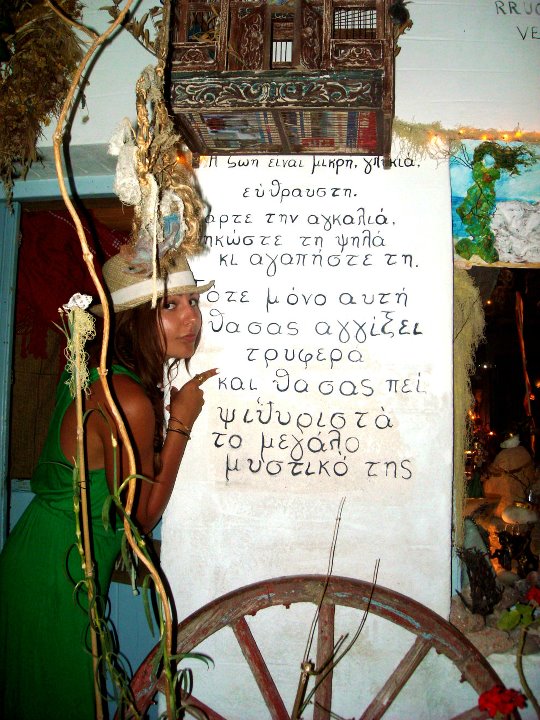 RRUG
VE
Η ζωή είναι μικρή, γλυκιά,
εύθραυστη.
άρτε την αγκαλιά,
ηκώστε τη ψηλά
κι αγαπήστε τη.
Τότε μόνο αυτή
θα σας αγγίξει
τρυφερά
και θα σας πεί
ψιθυριστά
το μεγάλο
μυστικό της